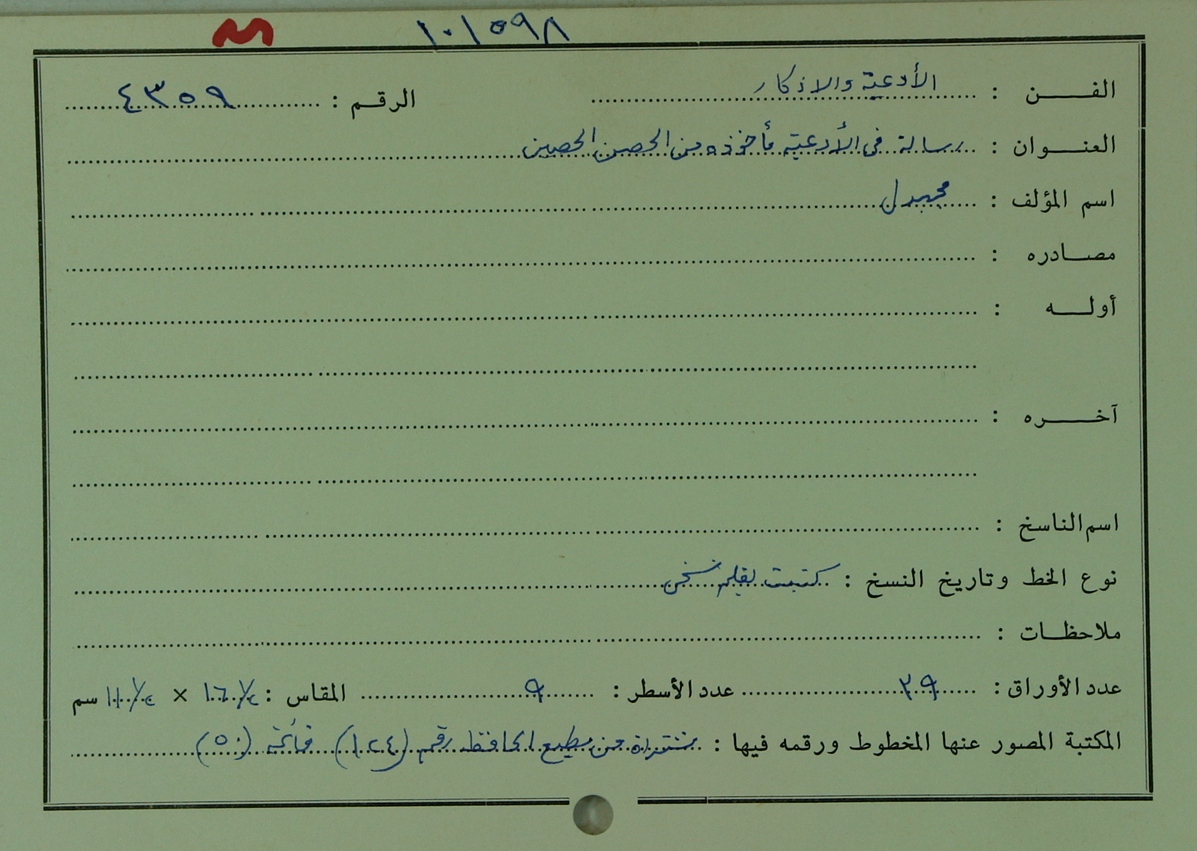 ١٠١٥٩٨
الفن : الأدعية والاذكار الرقم : ٤٣٥٩
العنوان : رسالة فى الأدعية مأخوذه من الحصن الحصين
اسم المؤلف : مجهول
مصادره :
أوله :
آخره :
اسم الناسخ :
نوع الخط وتاريخ النسخ : كتبت بقلم نسخى
ملاحظات :
عدد الأوراق : ٣٩ عدد الأسطر : ٩ المقاس : × سم
المكتبة المصور عنها المخطوط ورقمه فيها : مشتراة من مطيع الحافظ رقم (١٢٤) قائمة (٥٠)